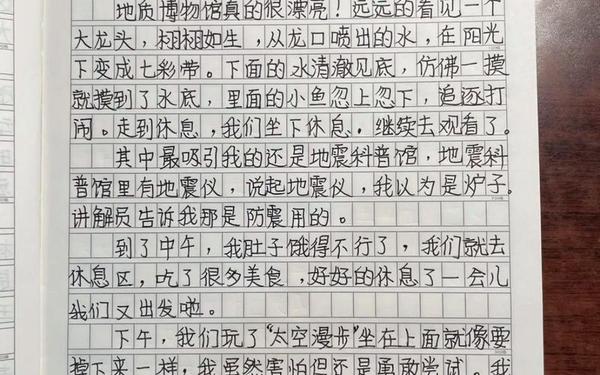 地质博物馆真的很漂亮！远远的看见一个
大龙头，栩栩如生，从龙口喷出的水，在阳光
下变成七彩带。下面的水清澈见底，仿佛一摸
就摸到了水底，里面的小鱼忽上忽下，追逐打
闹。走到休息，我们坐下休息。继续去观看了。
其中最吸引我的还是地震科普馆，地震科
普馆里有地震仪，说起地震仪，我以为是炉子。
讲解员告诉我那是防震用的。
到了中午，我肚子饿得不行了，我们就去
休息区，吃了很多美食，好好的休息了一会儿
我们又出发啦。
下午，我们玩了“太空漫步”坐在上面就像要
掉下来一样，我虽然害怕但还是勇敢尝试。我